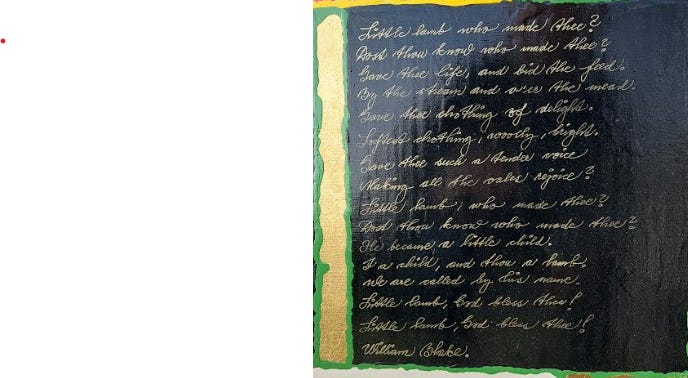 Little lamb who made thee?
Dost thou know who made thee?
Gave thee life, and bid thee feed.
By the stream and o'er the mead.
Gave thee clothing of delight.
Softest clothing, woolly, bright.
Gave thee such a tender voice
Making all the vales rejoice?
Little lamb, who made thee?
Dost thou know who made thee?
He became a little child.
I a child, and thou a lamb.
We are called by his name.
Little lamb, God bless thee!
Little lamb, God bless thee!
William Blake.